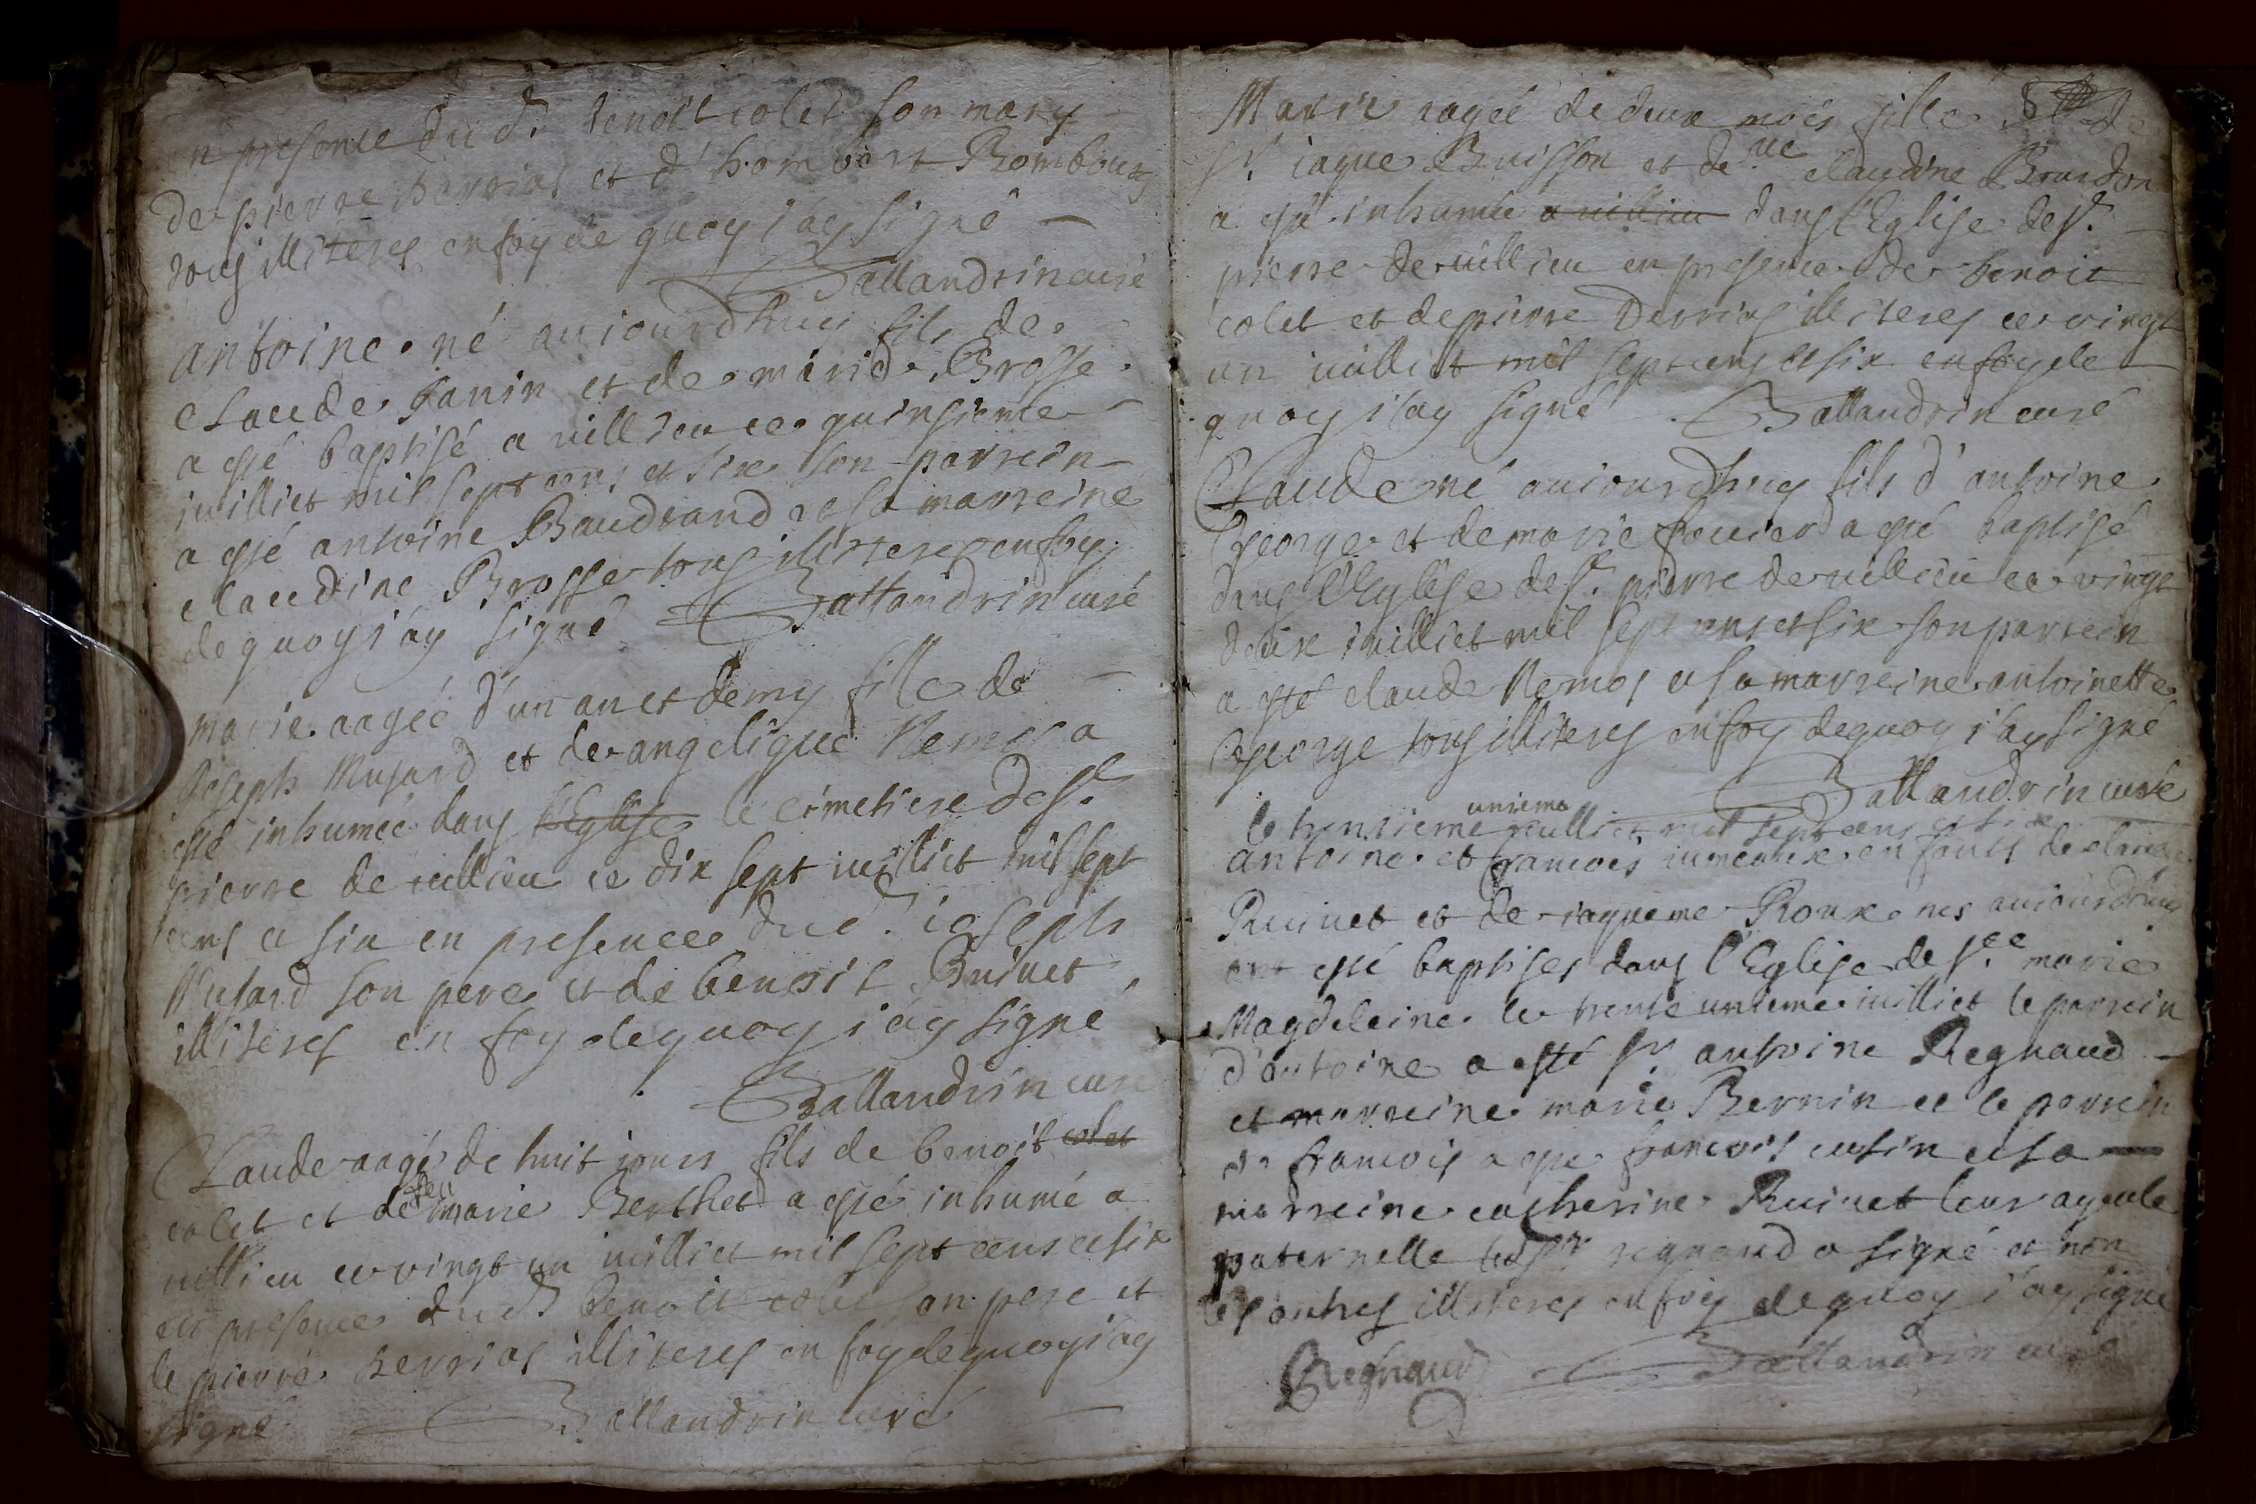 en presence du d. benoit colet son mary
de pierre Derrias et d'hombert Rombourg
tous illiteres en foy de quoy j'ay signé
Ballandrin curé
antoine né auiourdhuy fils de
claude Janin et de marie Brosse
a esté baptisé a uillieu ce quinsieme
iuilliet mil sept cens et six son parrein
a esté antoine Baudrand et sa marreine
claudine Brosse tous illiteres en foy
de quoy j'ay signé Ballandrin curé
marie aagée d'un an et demy fille de
Joseph Musard et de angelique Nemos a
esté inhumée dans l'Eglise le cimetiere de st.
pierre de uillieu ce dix sept iuilliet mil sept
cens et six en presence du d. ioseph
Musard son pere et de benoit Buinet
illiteres en foy de quoy j'ay signé
Ballandrin curé
Claude aagé de huit jours fils de benoit colet
colet et de feu marie Berthet a esté inhumé a
uillieu ce vingt un iuilliet mil sept cens et six
en presence du d. benoit colet son pere et
de pierre Derrias illiteres en foy de quoy j'ay
signé Ballandrin curé
Marie aagée de deux mois fille de
sr. iaque Buisson et de claudine Bourdon
a esté inhumée a uillieu dans l'Eglise de st.
pierre de uillieu en presence de benoit
colet et de pierre Derrias illiteres ce vingt
un iuilliet mil sept cens et six en foy de
quoy j'ay signé Ballandrin curé
Claude né auiourdhuy fils d'antoine
George et de marie a esté baptisé
dans l'Eglise de st. pierre de uillieu ce vingt
deux iuilliet mil sept cens et six son parrein
a esté claude Nemos et sa marreine antoinette
George tous illiteres en foy de quoy j'ay signé
Ballandrin curé
unieme
le trensieme iuilliet mil sept cens et six
antoine et francois iumeaux enfants de claude
Ruinet et de iaqueme Roux nes auiourdhuy
ont esté baptises dans l'Eglise de ste marie
Magdeleine le trente unieme iuilliet le parrein
d'antoine a esté sr. antoine Regnaud
et marreine marie Bernin et le parrein
de francois a esté francois cusin et sa
marreine catherine Ruinet leur ayeule
paternelle led sr regnaud a signé et non
les autres illiteres en foy de quoy j'ay signé
Regnaud Ballandrin curé